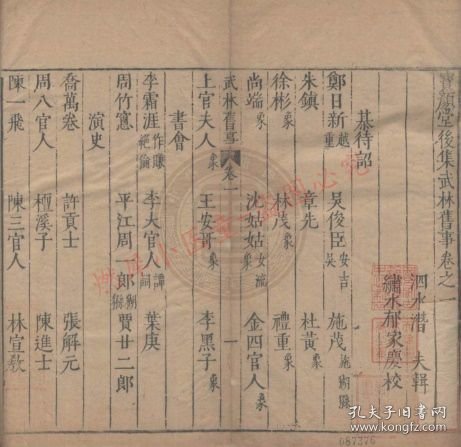 寶顏堂後集武林舊事卷之一
泗水潛夫輯
繡水郁家慶校
棊待詔
鄭日新越 吳俊臣安吉吳 施茂施猢猻
朱鎮 章先 杜黃象
徐彬象重 林茂象 禮重象
尚端象 沈姑姑象女流 金四官人象
武林舊事 卷一 一
上官夫人象 王安哥象 李黑子象
書會
李霜涯作賺絕倫 李大官人譚詞 葉庚
周竹窻 平江周二郎猢猻 賈廿二郎
演史
喬萬卷 許貢士 張解元
周八官人 檀溪子 陳進士
陳一飛 陳三官人 林宣教
087376
孔夫子旧书网